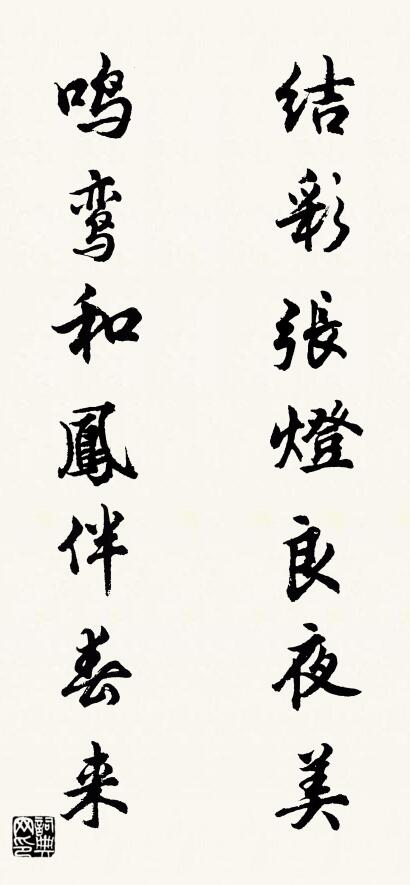 结彩張燈良夜美
鸣鸾和鳳伴春来
詞典网印